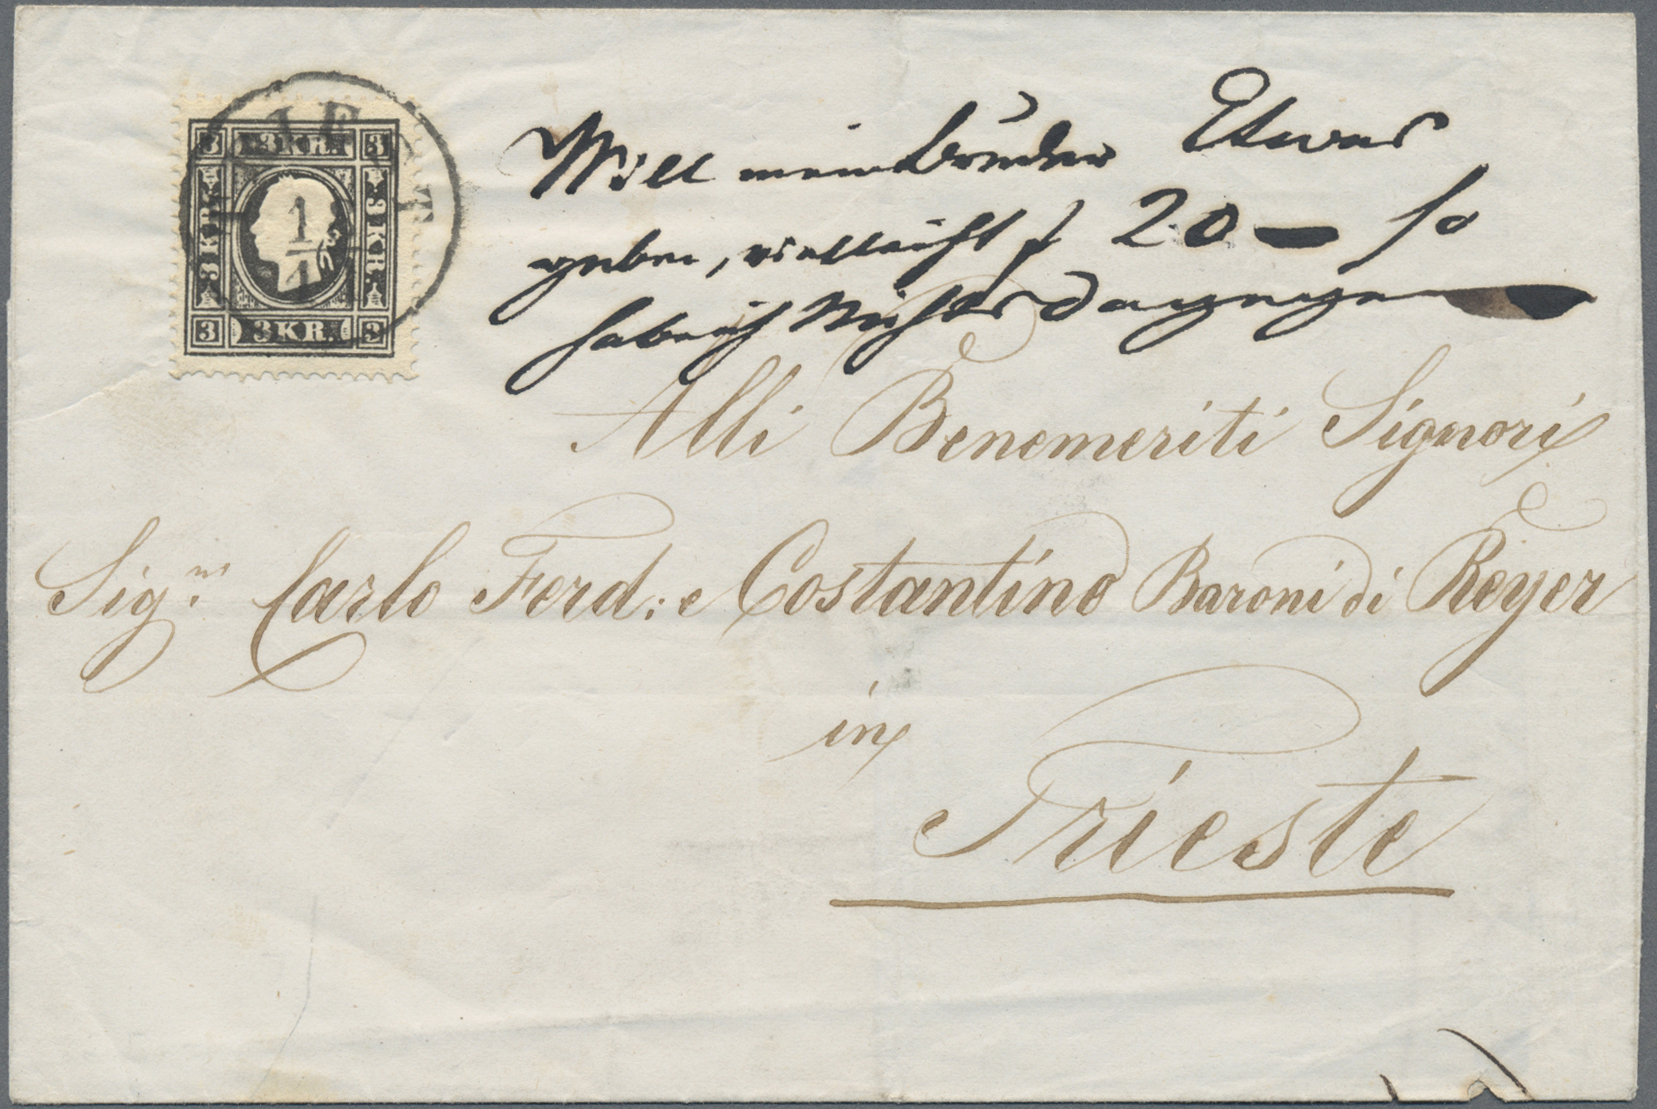 3 3 KR. 3
3 KR.
3 KR.
3 3 KR. 3
1/1
Will mein Bruder Etwas
geben, vielleicht f 20 — so
habe ich Nichts dagegen
Alli Benemeriti Signori
Sig.ri Carlo Ferd: e Costantino Baroni di Reyer
in
Trieste